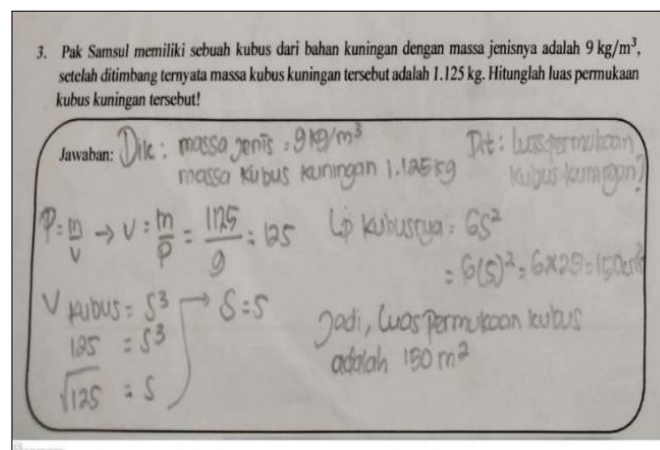 3. Pak Samsul memiliki sebuah kubus dari bahan kuningan dengan massa jenisnya adalah 9 kg/m³,
setelah ditimbang ternyata massa kubus kuningan tersebut adalah 1.125 kg. Hitunglah luas permukaan
kubus kuningan tersebut!
Jawaban: Dik : massa jenis : 9kg/m³
massa kubus kuningan 1.125kg
Dit : luas permukaan
kubus kuningan?
ρ = m/v → V = m/ρ = 1125/9 = 125
V kubus = S³ → S = 5
125 = S³
√125 = S
Lp kubusnya = 6S²
= 6(5)² = 6×25 = 150
Jadi, luas permukaan kubus
adalah 150 m²